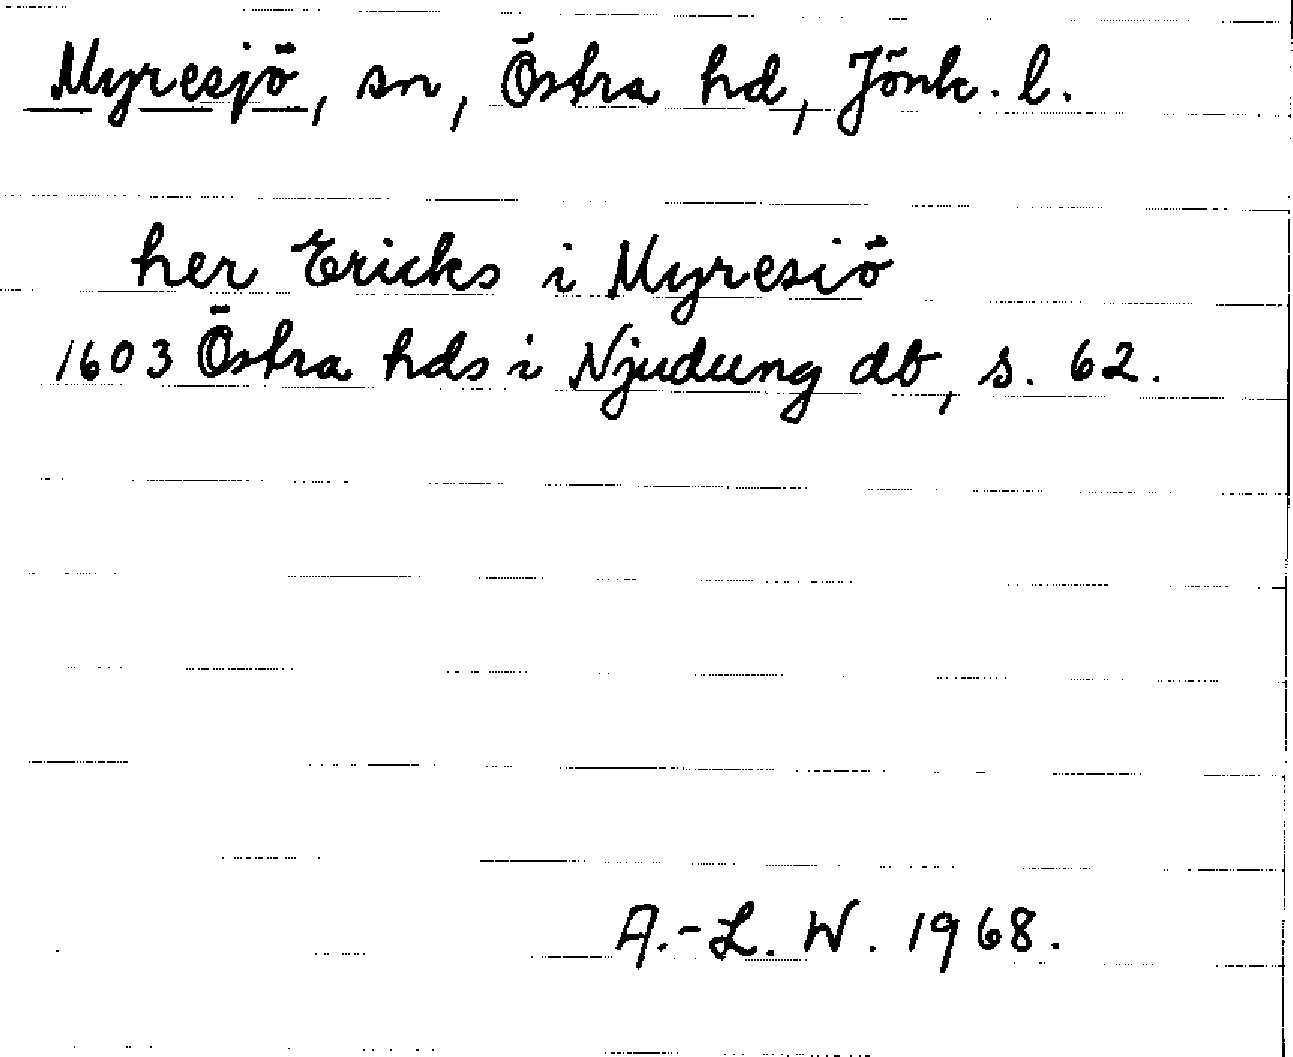 Myresjö, sn, Östra hd, Jönk. l.
her Ericks i Myresiö
1603 Östra hds i Njudung db, s. 62.
A.-L. W. 1968.